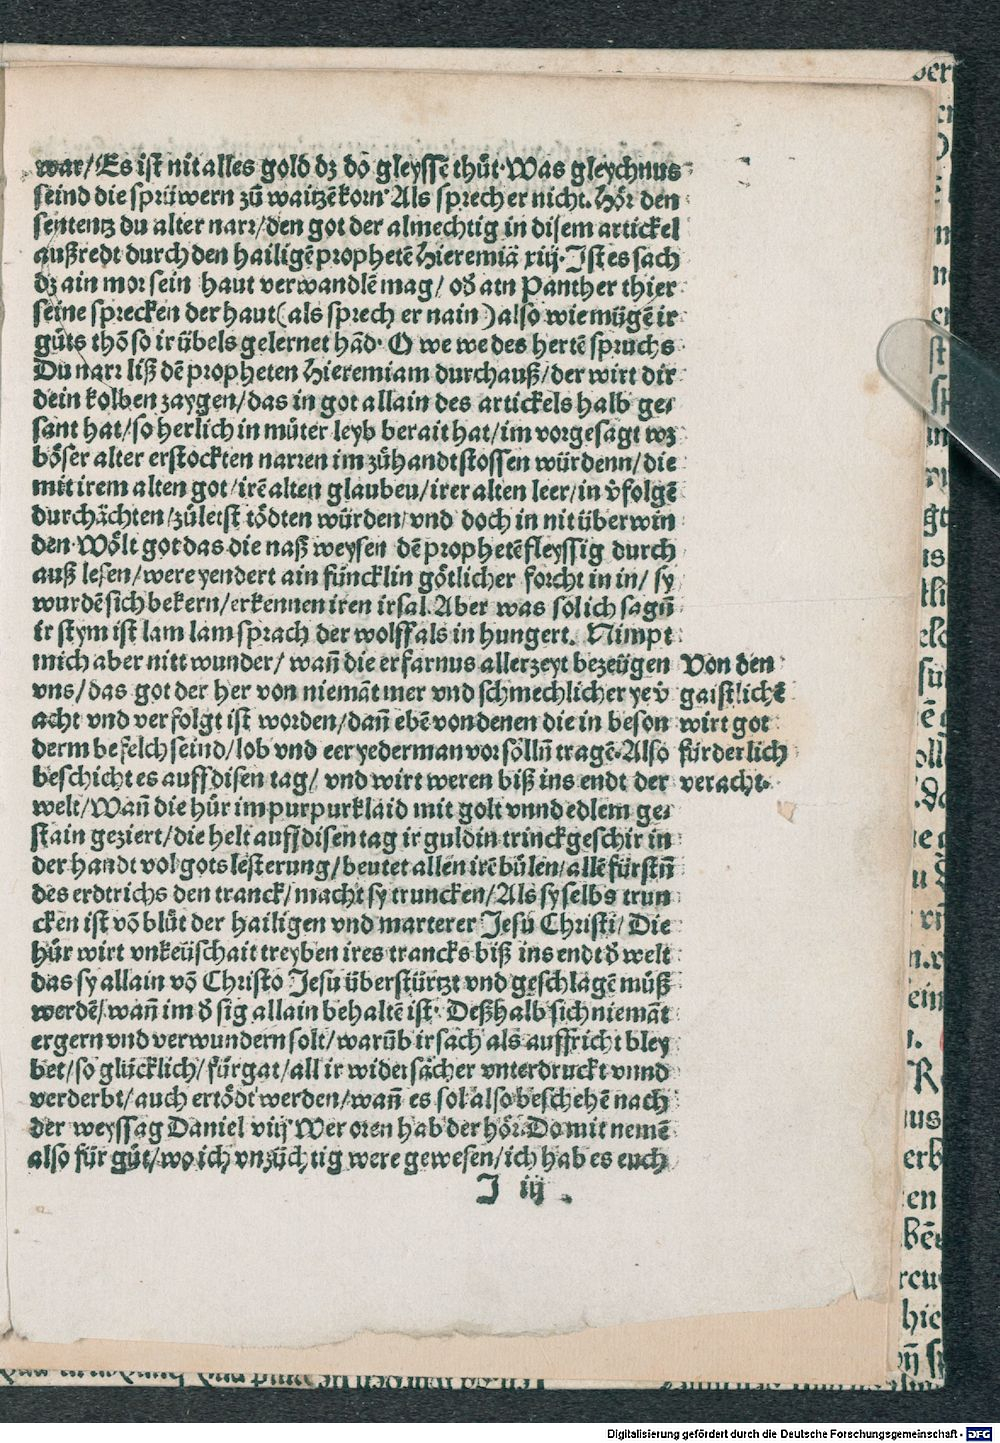 war/ Es ist nit alles gold dz do gleysse thut. Was gleychnus
seind die sprüwern zů waitzēkorn. Als sprech er nicht. Hör den
sententz du alter narr/ den got der almechtig in disem artickel
außredt durch den hailigē prophetē Hieremiā xiij. Ist es sach
dz ain mor sein haut verwandlē mag/ oď ain Panther thier
seine sprecken der haut (als sprech er nain) also wie mügē ir
gůts thō so ir übels gelernet hād. O we we des hertē spruchs
Du narr liß dē propheten Hieremiam durchauß/ der wirt dir
dein kolben zaygen/ das in got allain des artickels halb ge⸗
sant hat/ so herlich in můter leyb berait hat/ im vorgesagt wz
böser alter erstockten narren im zůhandt stossen würdenn/ die
mit irem alten got/ irē alten glauben/ irer alten leer/ in v̄folgē
durchächten/ zůletst tödten würden/ vnd doch in nit überwin
den. Wölt got das die naß weysen dē prophetē fleyssig durch
auß lesen/ were yendert ain füncklin götlicher forcht in in/ sy
wurdē sich bekern/ erkennen iren irsal. Aber was sol ich sagn̄
ir stym ist lam lam sprach der wolff als in hungert. Nimpt
mich aber nitt wunder/ wan̄ die erfarnus allerzeyt bezeügen
vns/ das got der her von niemāt mer vnd schmechlicher ye v̄
acht vnd verfolgt ist worden/ dan̄ ebē von denen die in beson
derm befelch seind/ lob vnd eer yederman vor sölln̄ tragē. Also
beschicht es auff disen tag/ vnd wirt weren biß ins endt der
Von den
gaistlichē
wirt got
fürderlich
veracht.
welt/ Wan̄ die hůr im purpurklaid mit golt vnnd edlem ge⸗
stain geziert/ die helt auff disen tag ir guldin trinckgeschir in
der handt vol gots lesterung/ beutet allen irē bůlen/ allē fürstn̄
des erdtrichs den tranck/ macht sy truncken/ Als sy selbs trun
cken ist vō blůt der hailigen vnd marterer Jesu Christi/ Die
hůr wirt vnkeüschait treyben ires trancks biß ins endt ď welt
das sy allain vō Christo Jesu überstürtzt vnd geschlagē můß
werdē/ wan̄ im ď sig allain behaltē ist. Deßhalb sich niemāt
ergern vnd verwundern solt/ warūb ir sach als auffricht bley
bet/ so glücklich/ fürgat/ all ir widersächer vnterdruckt vnnd
verderbt/ auch ertödt werden/ wan̄ es sol also beschehē nach
der weyssag Daniel viij Wer oren hab der hör. Do mit nemē
also für gůt/ wo ich vnzüchtig were gewesen/ ich hab es euch
J iij
Digitalisierung gefördert durch die Deutsche Forschungsgemeinschaft - DFG